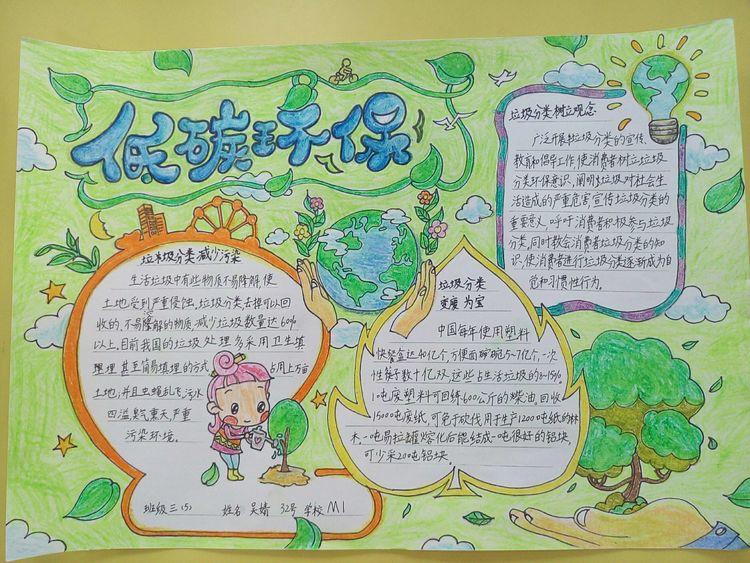 低碳环保
垃圾分类树立观念
广泛开展垃圾分类的宣传、
教育和倡导工作,使消费者树立垃圾
分类环保意识,阐明垃圾对社会生
活造成的严重危害,宣传垃圾分类的
重要意义,呼吁消费者积极参与垃圾
分类,同时教会消费者垃圾分类的知
识,使消费者进行垃圾分类逐渐成为自
觉和习惯性行为。
垃圾分类减少污染
生活垃圾中有些物质不易降解,使
土地受到严重侵蚀,垃圾分类去掉可以回
收的,不易降解的物质,减少垃圾数量达60%
以上,目前我国的垃圾处理多采用卫生填
埋理甚至简易填埋的方式占用上万亩
土地;并且虫蝇乱飞,污水
四溢,臭气熏天,严重
污染环境。
班级三(5) 姓名吴婧 32号 学校M1
垃圾分类
变废为宝
中国每年使用塑料
快餐盒达40亿个,方便面碗5-7亿个,一次
性筷子数十亿双,这些占生活垃圾的8-15%
1吨废塑料可回炼600公斤的柴油,回收
1500吨废纸,可免于砍伐用于生产1200吨纸的林
木,一吨易拉罐熔化后能结成一吨很好的铝块,
可少采20吨铝块。